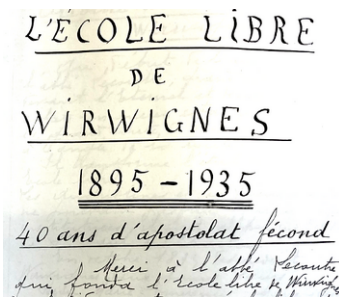 L'ÉCOLE LIBRE
DE
WIRWIGNES
1895 - 1935
40 ans d'apostolat fécond
Merci à l'abbé Lecoutre
qui fonda l'école libre de Wirwignes